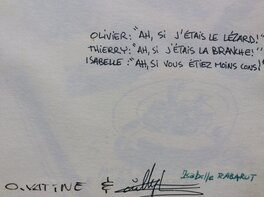 OLIVIER: "AH, SI J'ÉTAIS LE LÉZARD!"
THIERRY: "AH, SI J'ÉTAIS LA BRANCHE!"
ISABELLE: "AH, SI VOUS ÉTIEZ MOINS CONS!"
Isabelle RABAROT
O. VATINE &